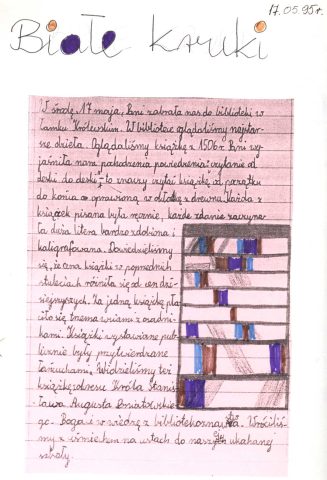 17.05.95r.
Białe kruki
W środę, 17 maja, Pani zabrała nas do biblioteki w
zamku Królewskim. W bibliotece oglądaliśmy najstar-
sze dzieła. Oglądaliśmy książkę z 1506r. Pani wy-
jaśniła nam pochodzenia powiedzenia: czytanie od
deski do deski, to znaczy czytać książkę od początku
do końca a oprawioną w okładkę z drewna. Każda z
książek pisana była ręcznie, każde zdanie zaczyna-
ła duża litera bardzo zdobiona i
kaligrafowana. Dowiedzieliśmy
się, że cena książki w poprzednich
stuleciach różniła się od cen dzi-
siejszych. Za jedną książkę pła-
ciło się trzema wsiami z osadni-
kami. Książki wystawiane pub-
licznie były przytwierdzane
łańcuchami. Widzieliśmy też
książkę z okresu Króla Stanis-
ława Augusta Poniatowskie-
go. Bogaci w wiedzę z bibliotekoznawstwa. Wróciliś-
my z uśmiechem na ustach do naszej ukochanej
szkoły.